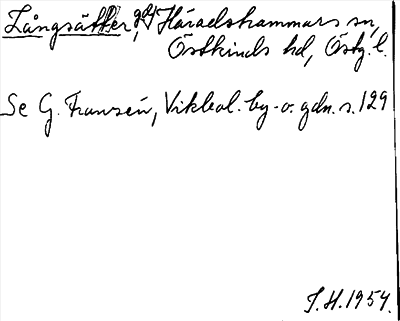 Långsätter, gd, Häradshammars sn,
Östkinds hd, Östg. l.
Se G. Fransén, Vikbol. by- o. gdn. s. 129
J.H. 1954.